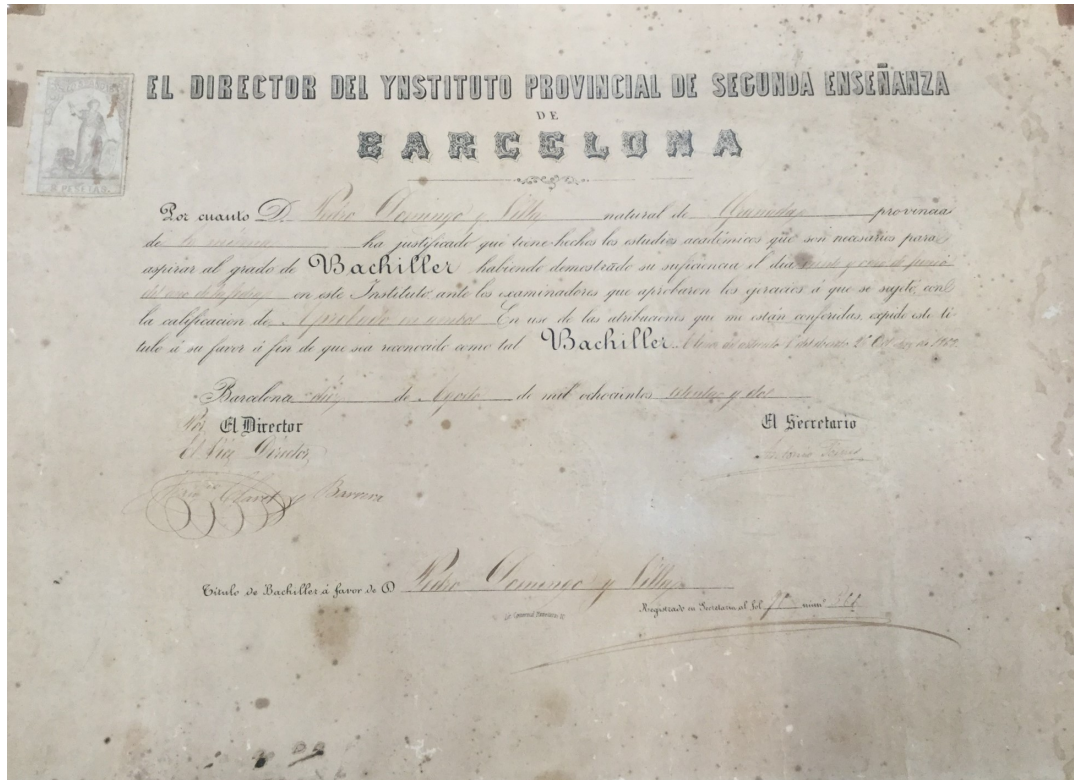 EL DIRECTOR DEL YNSTITUTO PROVINCIAL DE SEGUNDA ENSEÑANZA
DE
BARCELONA
Por cuanto D. Pedro Domingo y Villa natural de Granada provincia
de la misma ha justificado que tiene hechos los estudios académicos que son necesarios para
aspirar al grado de Bachiller, habiendo demostrado su suficiencia el dia veinte y de Junio
del año de la fecha en este Instituto ante los examinadores que aprobaron los ejercicios á que se sujetó, con
la calificacion de Aprobado en ambos En uso de las atribuciones que me están conferidas, expido este tí-
tulo á su favor á fin de que sea reconocido como tal Bachiller.
Barcelona diez de Agosto de mil ochocientos setenta y dos
Por El Director
El Vice Director
El Secretario
Antonio
Claret y Barrera
Título de Bachiller á favor de D Pedro Domingo y Villa
Registrado en Secretaria al fol. núm